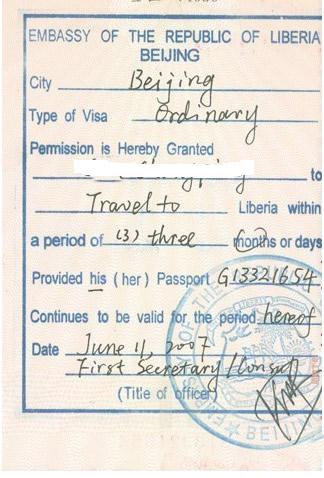 EMBASSY OF THE REPUBLIC OF LIBERIA
BEIJING
City Beijing
Type of Visa Ordinary
Permission is Hereby Granted
to
Travel to Liberia within
a period of (3) three months or days
Provided his (her) Passport G13321654
Continues to be valid for the period hereof
Date June 11, 2007
First Secretary/Consul
(Title of officer)
EMBASSY OF THE
BEIJING